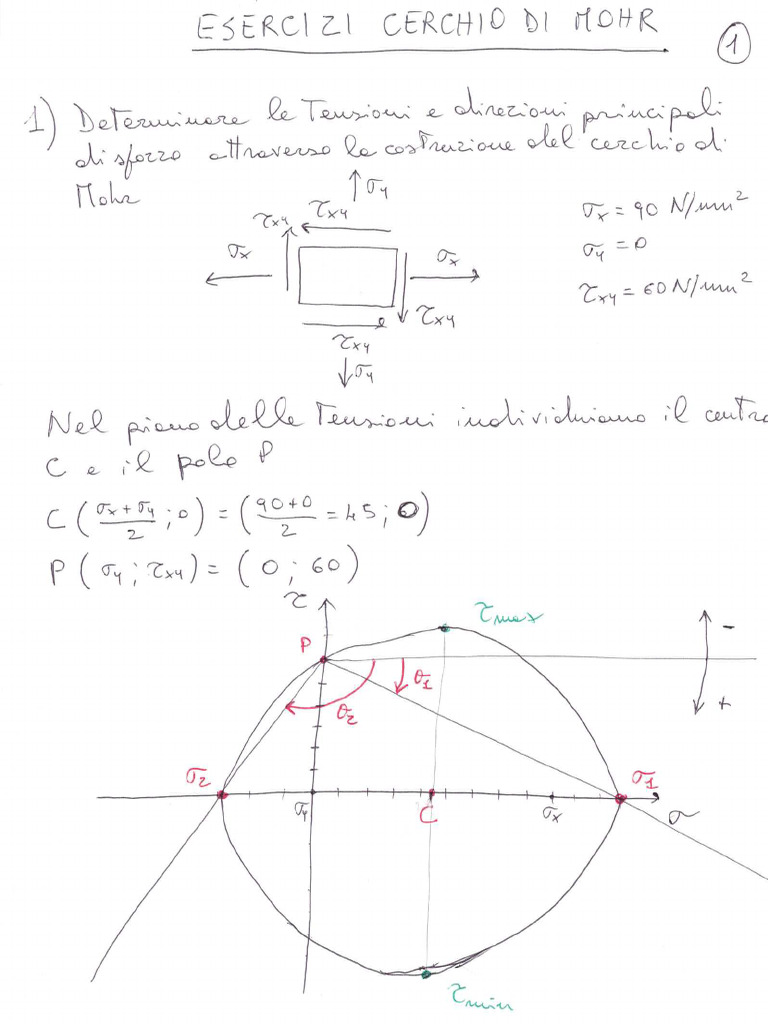 ESERCIZI CERCHIO DI MOHR
1
1) Determinare le Tensioni e direzioni principali
di sforzo attraverso la costruzione del cerchio di
Mohr
σy
τxy τxy
σx σx
τxy
τxy
σy
σx = 90 N/mm²
σy = 0
τxy = 60 N/mm²
Nel piano delle Tensioni individuiamo il centro
C e il polo P
C ( σx + σy / 2 ; 0 ) = ( 90+0 / 2 = 45 ; 0 )
P ( σy ; τxy ) = ( 0 ; 60 )
τ
τmax
P
-
θ1
θ2
+
σ2
σ1
σy
C
σx
σ
τmin